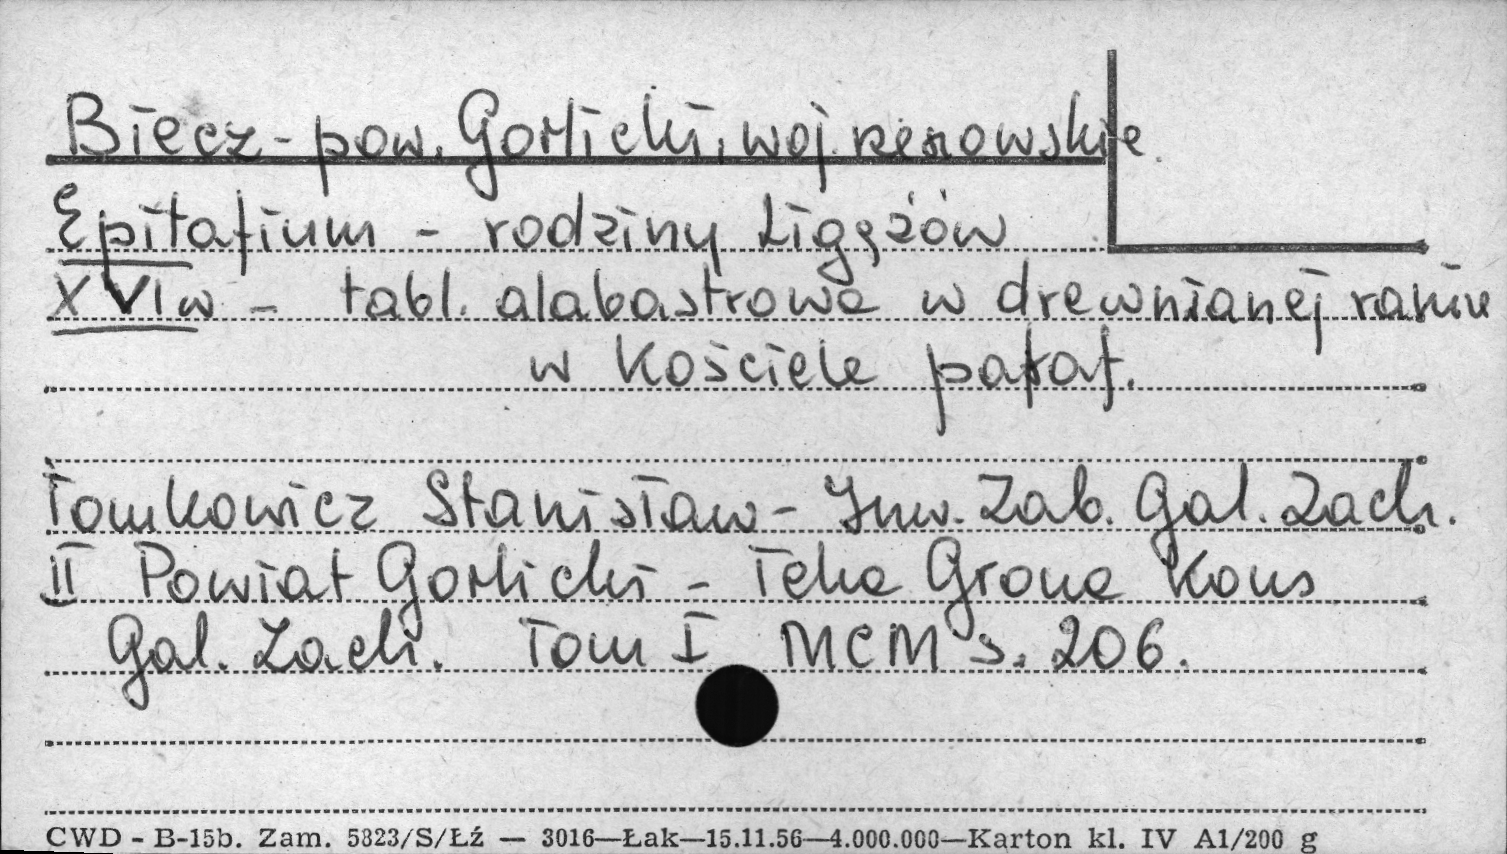 Biecz - pow. Gorlicki, woj. rzeszowskie.
Epitafium - rodziny Ligęzów
XVI w - tabl. alabastrowa w drewnianej ramie
w kościele paraf.
Tomkowicz Stanisław - Inw. Zab. Gal. Zach.
II Powiat Gorlicki - Teka Grona Kons
Gal. Zach. Tom I MCM s. 206.
CWD - B-15b. Zam. 5823/S/Łź — 3016—Łak—15.11.56—4.000.000—Karton kl. IV A1/200 g